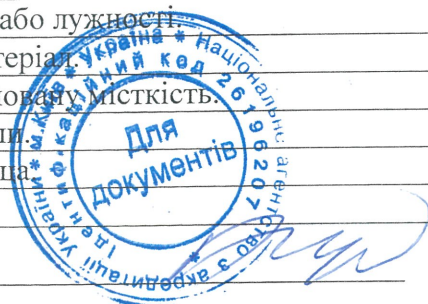 або лужності.
теріал.
новану місткість.
ли.
ца.
* м. Київ * Україна * Національне агентство з акредитації України
Ідентифікаційний код 26196207
Для
документів